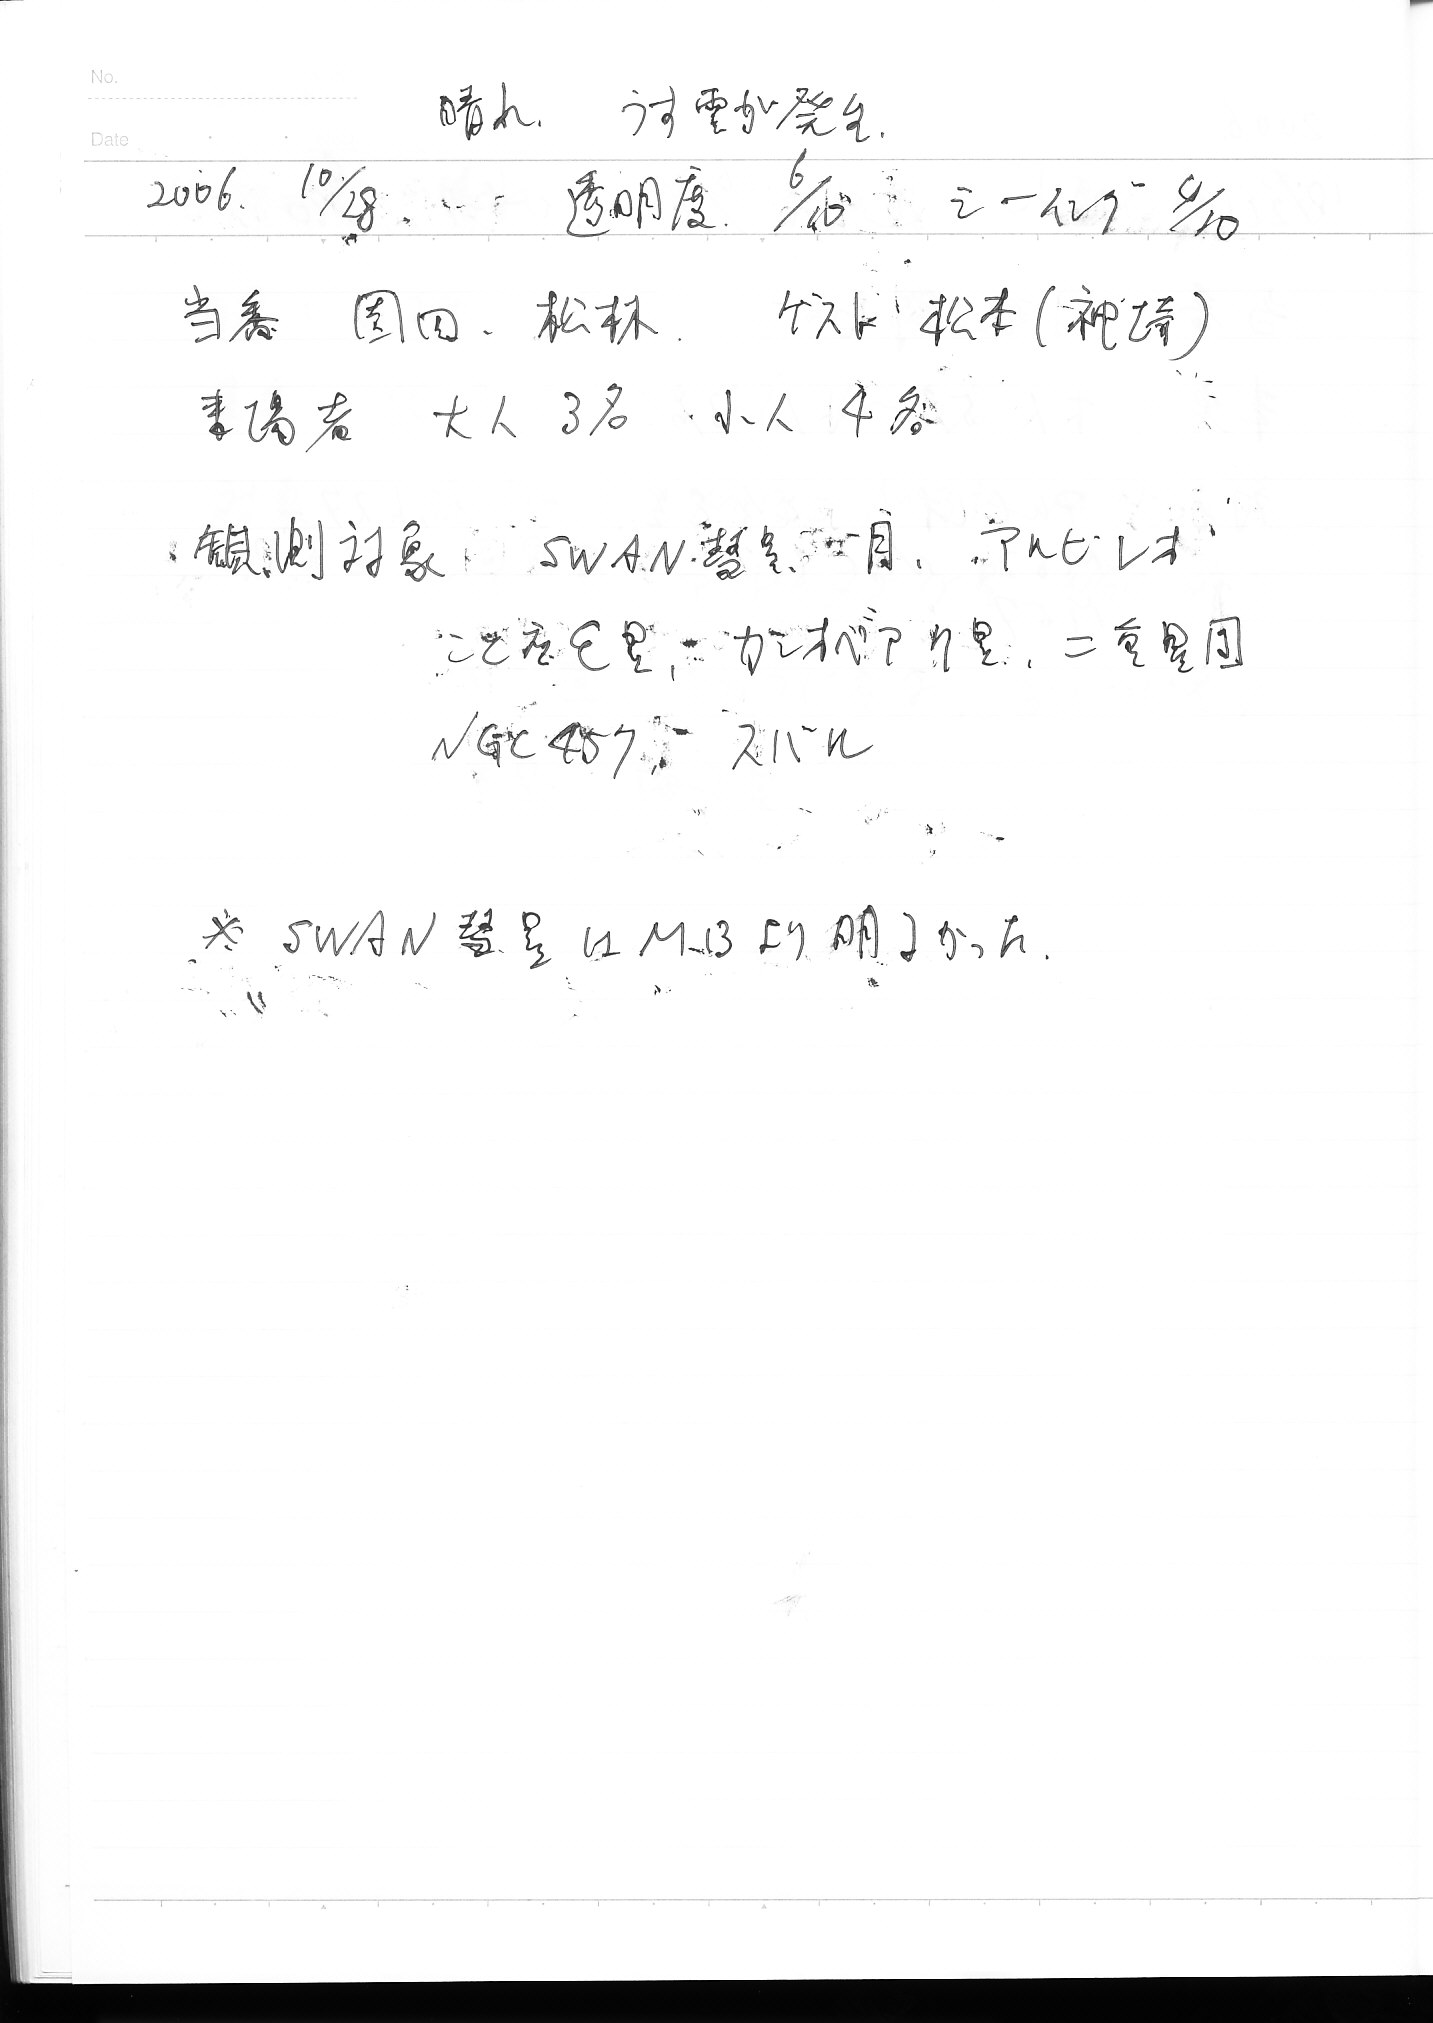 No.
晴れ. うす雲が発生.
Date
2006. 10/28. 透明度. 6/10 シーイング 4/10
当番 園田、松林. ゲスト 松本(神埼)
来場者 大人 3名 小人 4名
観測対象 SWAN彗星、月、アルビレオ
こと座ε星、カシオペアη星、二重星団
NGC457、スバル
※ SWAN彗星はM13より明るかった.